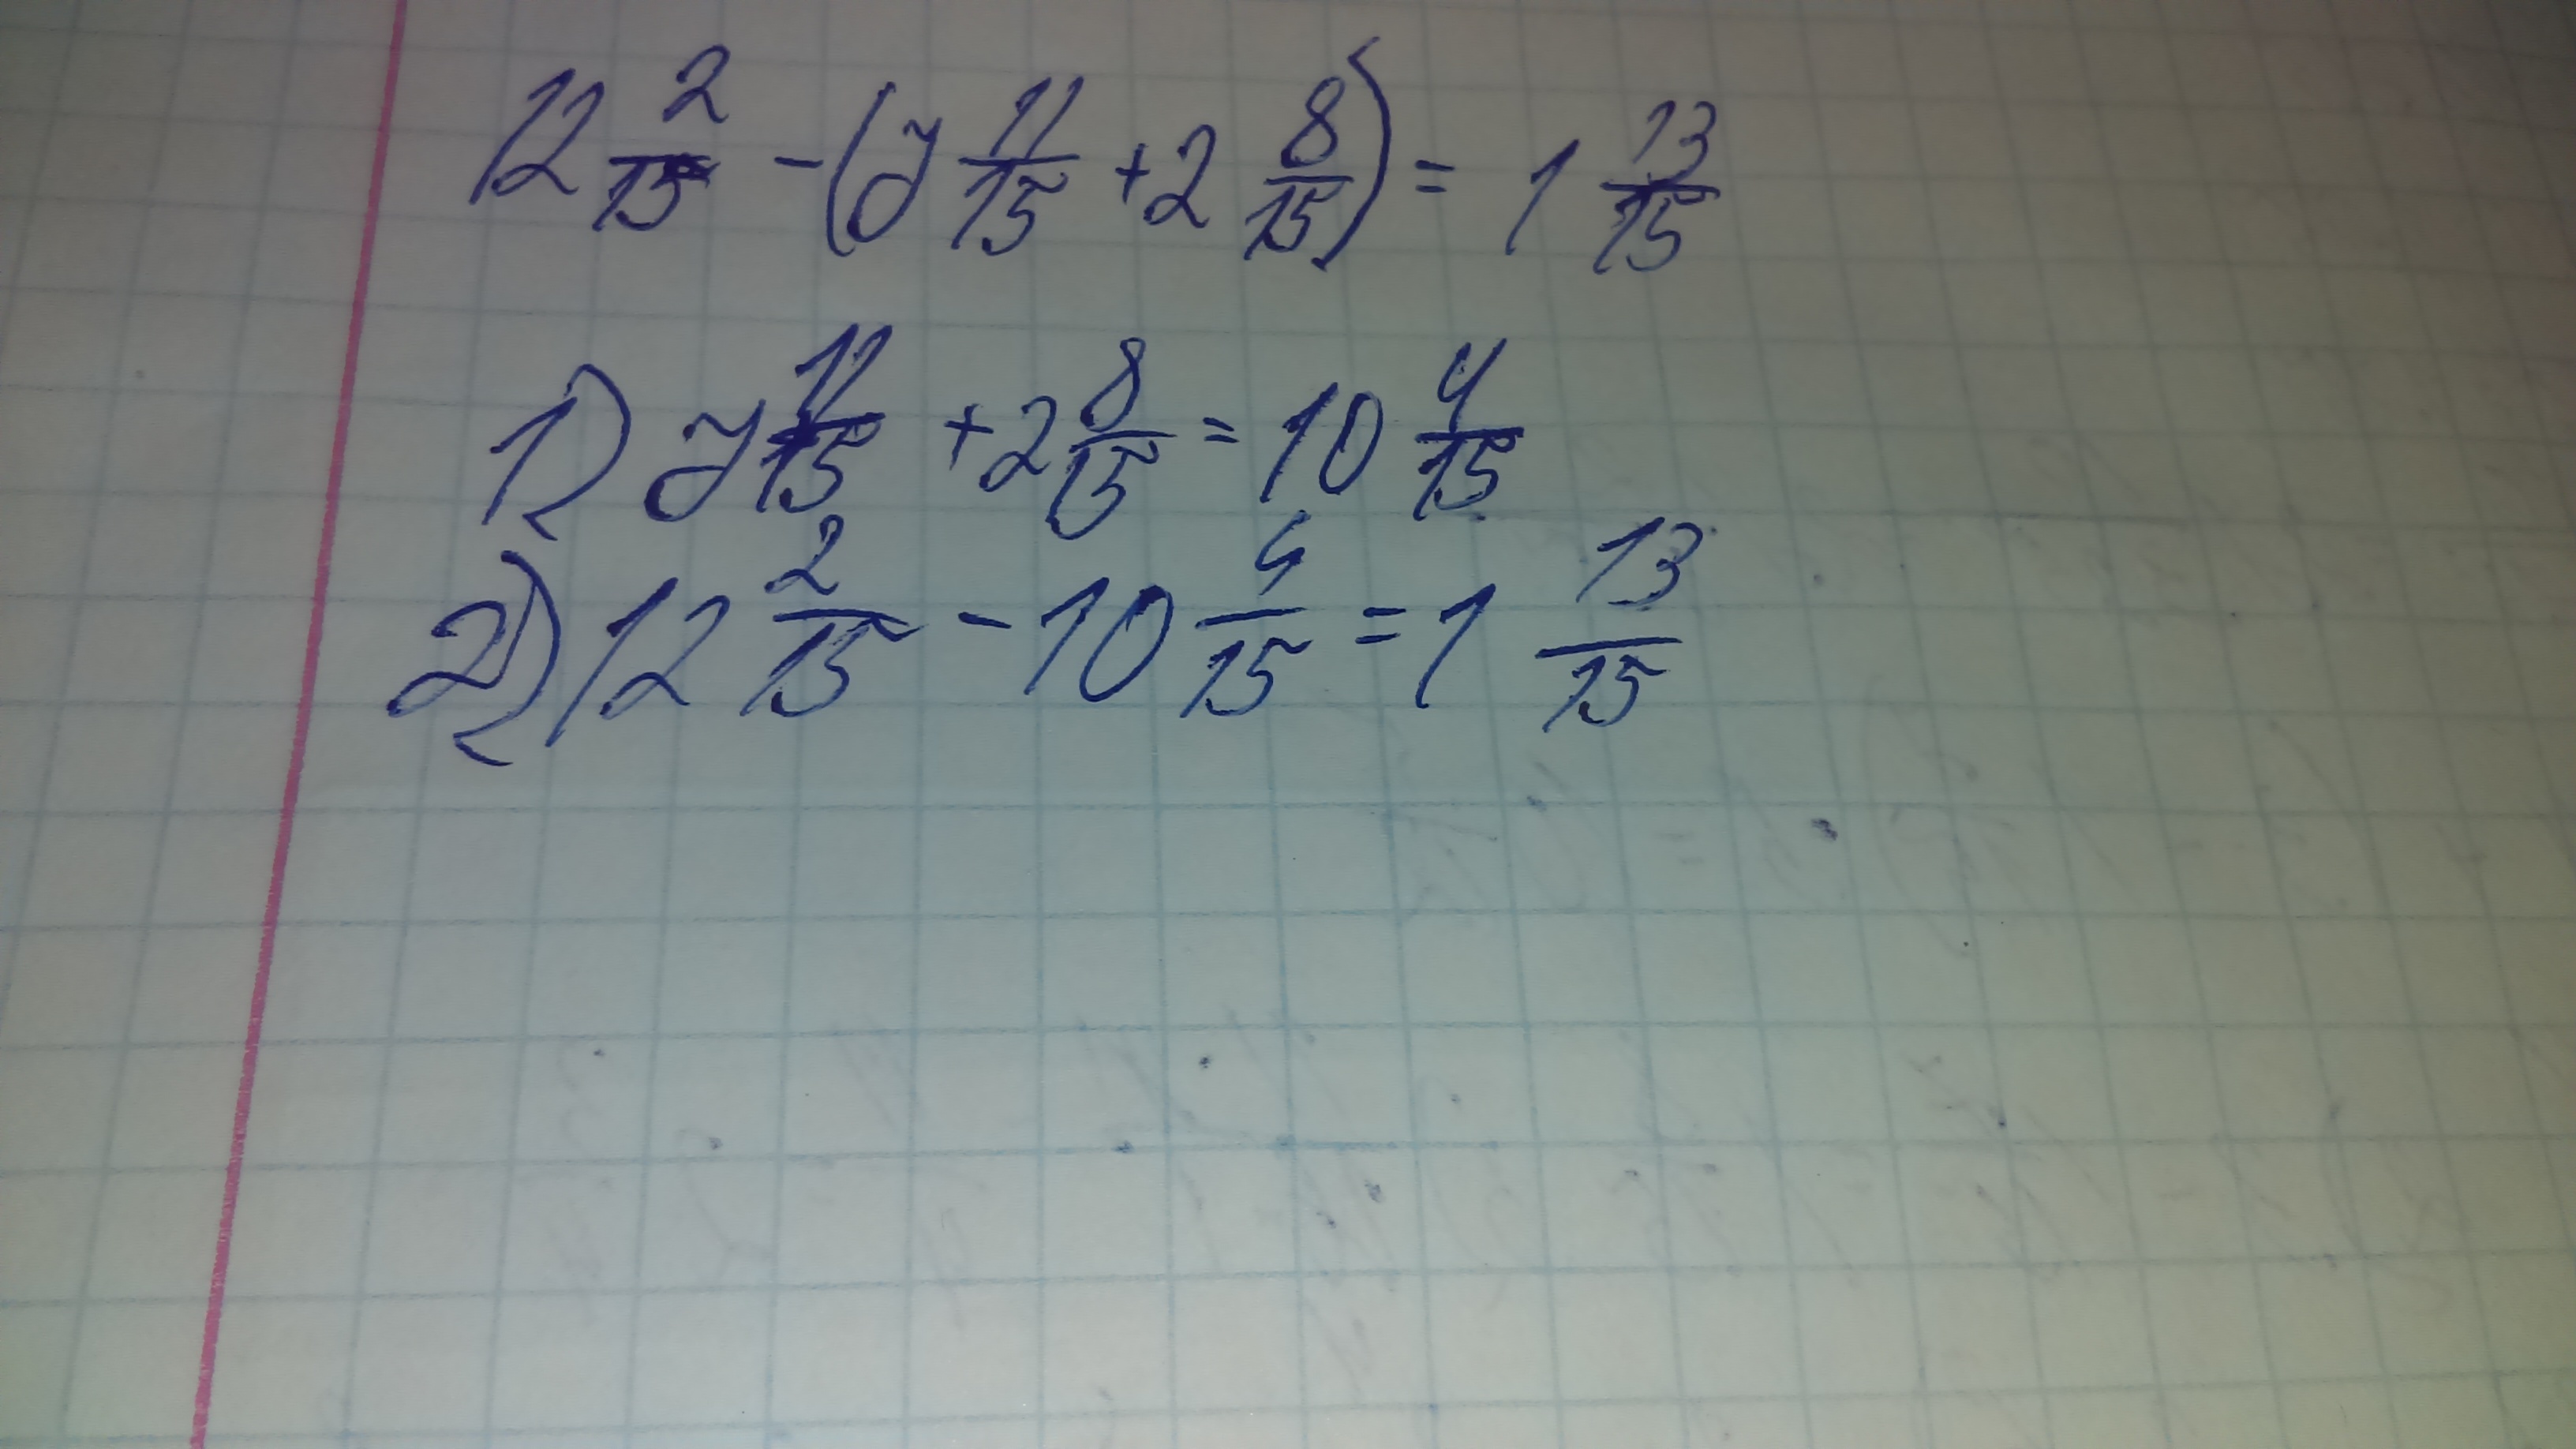 12 2/15 - (7 11/15 + 2 8/15) = 1 13/15
1) 7 11/15 + 2 8/15 = 10 4/15
2) 12 2/15 - 10 4/15 = 1 13/15